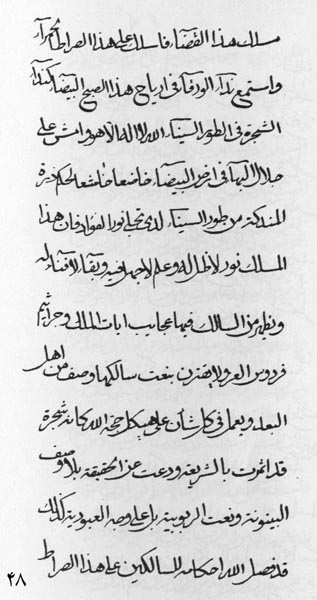 مسلك هذا القضاء فاسلك على هذا الصراط الحمراء
واستمع نداء الورقاء في ارياح هذا الصبح البيضاء كنداء
الشجرة في الطور السيناء الله لا اله الا هو وامش على
جلال البهاء في ارض البيضاء خاضعا خاشعا لحكم ذرة
المندكة من طور السيناء لدى تجلى نور الفؤاد فان هذا
المسلك نور لا ظل له وعلم لا جهل فيه وبقاء لا فناء له
ويظهر من السالك فيها عجايب ايات الملك وجراثيم
فردوس العز ولا يقترن بنعت سالكها وصف من اهل
البعد ويعمل في كل شأن على هيكل حجة الله كانه شجرة
قد اثمرت بالشريعة ودعت عن الحقيقة بلا وصف
البينونة ونعت الربوبية بل على وجه العبودية كذلك
قد فصل الله احكامه للسالكين على هذا الصراط
۴۸